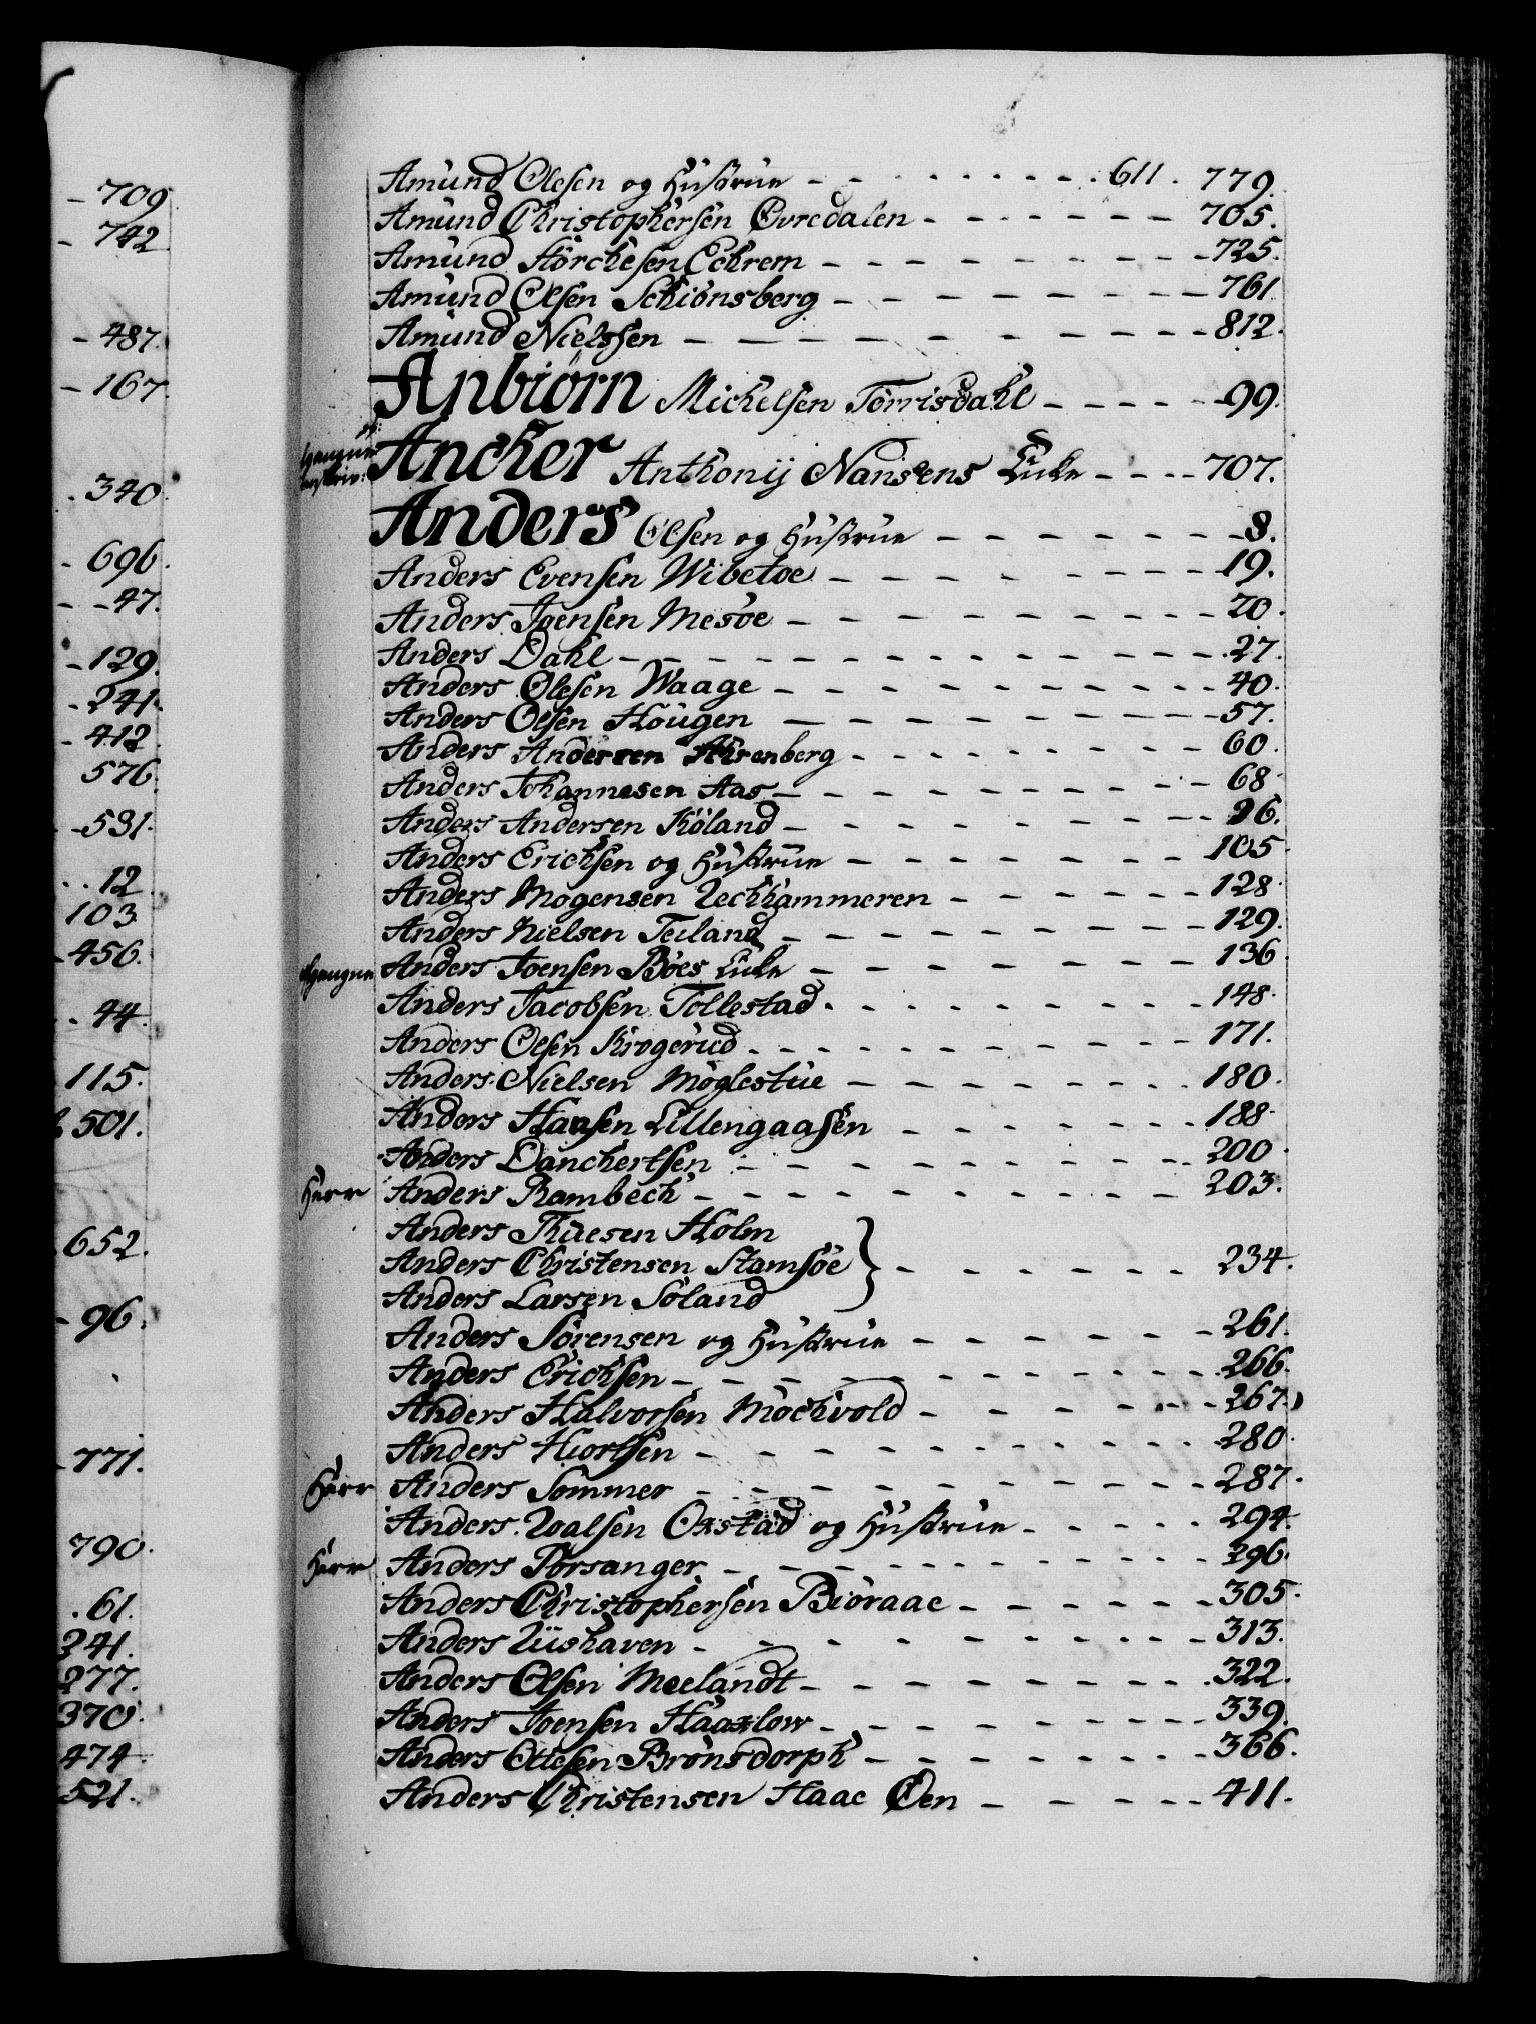 709
742
487.
167
340
696.
47.
129.
241.
412
576
531.
12
103
456.
44.
115.
501.
652.
96.
771.
790.
61.
241.
277.
370.
474.
521.
Amund Olesen og Hustrue - - - 611. 779.
Amund Christophersen Evredalen - - - 705.
Amund Störchesen Echrem - - - 725.
Amund Olsen Schiönsberg - - - 761
Amund Nielssen - - - 812.
Anbiörn Michelsen Torrisdahl - - - 99.
Ancher Anthonij Nansens Enke - - - 707.
Anders Olsen og Hustrue - - - 8.
Anders Evensen Wibetoe - - - 19.
Anders Joensen Mesöe - - - 20.
Anders Dahl - - - 27.
Anders Olesen Waage - - - 40.
Anders Olsen Hougen - - - 57.
Anders Andersen Ahrenberg - - - 60.
Anders Johannesen Aas - - - 68
Anders Andersen Röland - - - 96.
Anders Erichsen og Hustrue - - - 105
Anders Mogensen Reckhammeren - - - 128
Anders Nielsen Teiland - - - 129.
Anders Joensen Böes Enke - - - 136
Anders Jacobsen Tollestad - - - 148.
Anders Olsen Krogerud - - - 171.
Anders Nielsen Möglestue - - - 180.
Anders Hansen Lillengaasen - - - 188
Anders Danchertsen - - - 200
Herr Anders Rambech - - - 203.
Anders Thuesen Holm
Anders Christensen Stamsöe } - - - 234.
Anders Larsen Soland
Anders Sörensen og Hustrue - - - 261.
Anders Erichsen - - - 266.
Anders Halvorsen Mochvold - - - 267.
Anders Hiortsen - - - 280.
Herr Anders Sommer - - - 287.
Anders Roalsen Oxstad og Hustrue - - - 294.
Herr Anders Porsanger - - - 296.
Anders Christophersen Biöraae - - - 305.
Anders Riishaven - - - 313.
Anders Olsen Meelandt - - - 322.
Anders Joensen Haaxlow - - - 339.
Anders Ottesen Brönsdorph - - - 366.
Anders Christensen Haae Öen - - - 411.